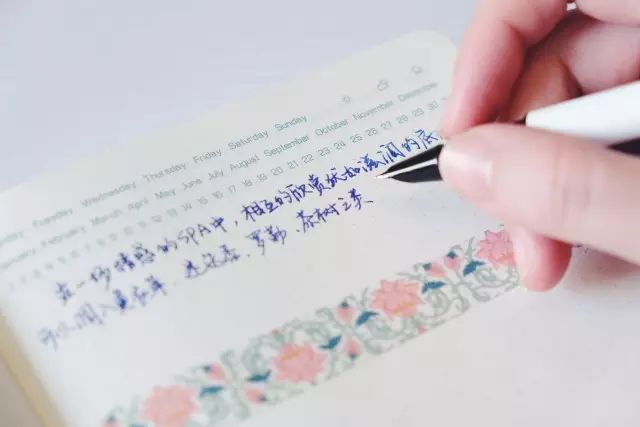 Tuesday Wednesday Thursday Friday Saturday Sunday
February March April May June July August September October November December
7 8 9 10 11 12 13 14 15 16 17 18 19 20 21 22 23 24 25 26 27 28 29 30
在一场情感的SPA中，相互的欣赏就如滋润的底
罗勒、茶树之类